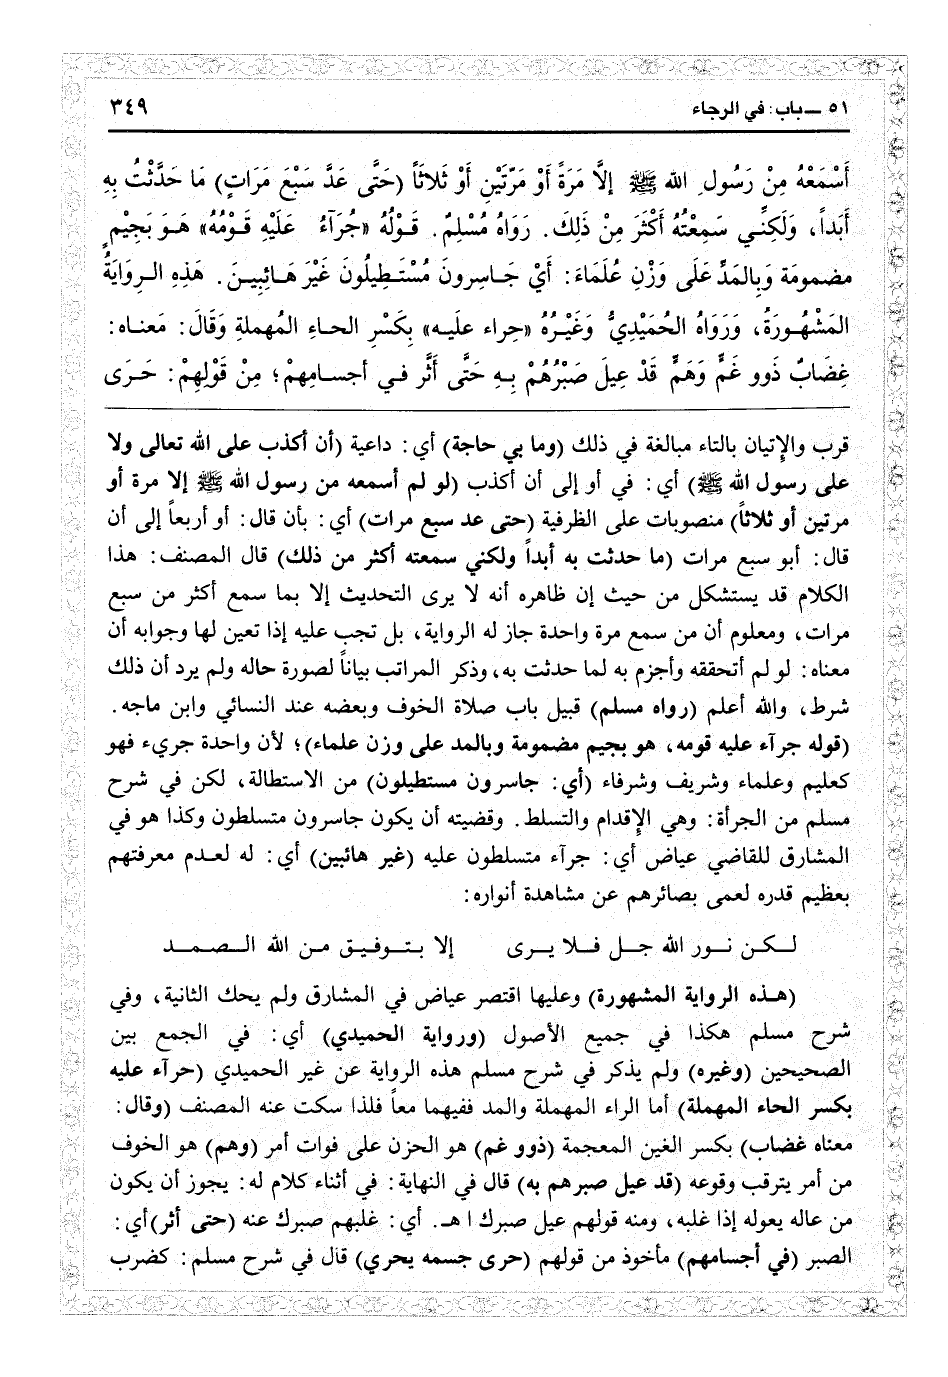 ٥١ ـ باب: في الرجاء ٣٤٩
أَسْمَعْهُ مِنْ رَسُولِ الله ﷺ إلَّا مَرَةً أَوْ مَرّتَيْنِ أَوْ ثَلاثَاً (حَتَّى عَدَّ سَبْعَ مَرَاتٍ) مَا حَدَّثْتُ بِهِ
أَبَداً، وَلَكِنِّي سَمِعْتُهُ أَكْثَرَ مِنْ ذَلِكَ. رَوَاهُ مُسْلِمٌ. قَوْلُهُ «جُرَآءُ عَلَيْهِ قَوْمُهُ» هَوَ بَجِيْمٍ
مضمومَة وَبِالمَدِّ عَلَى وَزْنِ عُلَمَاءَ: أَيْ جَاسِرونَ مُسْتَطِيلُونَ غَيْرَ هَائِبينَ. هَذِهِ الرِوَايَةُ
المَشْهُورَةُ، وَرَوَاهُ الحُمَيْدِيُّ وَغَيْرُهُ «حِراء علَيه» بِكَسْرِ الحاءِ المُهملةِ وَقَالَ: مَعنَاه:
غِضَابٌ ذَوو غَمٍّ وَهَمٍّ قَدْ عِيلَ صَبْرُهُمْ بِهِ حَتَّى أَثَّر في أجسامِهمْ؛ مِنْ قَوْلِهِمْ: حَرَى
قرب والإتيان بالتاء مبالغة في ذلك (وما بي حاجة) أي: داعية (أن أكذب على الله تعالى ولا
على رسول الله ﷺ) أي: في أو إلى أن أكذب (لو لم أسمعه من رسول الله ﷺ إلا مرة أو
مرتين أو ثلاثاً) منصوبات على الظرفية (حتى عد سبع مرات) أي: بأن قال: أو أربعاً إلى أن
قال: أبو سبع مرات (ما حدثت به أبداً ولكني سمعته أكثر من ذلك) قال المصنف: هذا
الكلام قد يستشكل من حيث إن ظاهره أنه لا يرى التحديث إلا بما سمع أكثر من سبع
مرات، ومعلوم أن من سمع مرة واحدة جاز له الرواية، بل تجب عليه إذا تعين لها وجوابه أن
معناه: لو لم أتحققه وأجزم به لما حدثت به، وذكر المراتب بياناً لصورة حاله ولم يرد أن ذلك
شرط، والله أعلم (رواه مسلم) قبيل باب صلاة الخوف وبعضه عند النسائي وابن ماجه.
(قوله جرآء عليه قومه، هو بجيم مضمومة وبالمد على وزن علماء)؛ لأن واحدة جريء فهو
كعليم وعلماء وشريف وشرفاء (أي: جاسرون مستطيلون) من الاستطالة، لكن في شرح
مسلم من الجرأة: وهي الإقدام والتسلط. وقضيته أن يكون جاسرون متسلطون وكذا هو في
المشارق للقاضي عياض أي: جرآء متسلطون عليه (غير هائبين) أي: له لعدم معرفتهم
بعظيم قدره لعمى بصائرهم عن مشاهدة أنواره:
لكن نور الله جل فلا يرى إلا بتوفيق من الله الصمد
(هذه الرواية المشهورة) وعليها اقتصر عياض في المشارق ولم يحك الثانية، وفي
شرح مسلم هكذا في جميع الأصول (ورواية الحميدي) أي: في الجمع بين
الصحيحين (وغيره) ولم يذكر في شرح مسلم هذه الرواية عن غير الحميدي (حرآء عليه
بكسر الحاء المهملة) أما الراء المهملة والمد ففيهما معاً فلذا سكت عنه المصنف (وقال:
معناه غضاب) بكسر الغين المعجمة (ذوو غم) هو الحزن على فوات أمر (وهم) هو الخوف
من أمر يترقب وقوعه (قد عيل صبرهم به) قال في النهاية: في أثناء كلام له: يجوز أن يكون
من عاله يعوله إذا غلبه، ومنه قولهم عيل صبرك ا هـ. أي: غلبهم صبرك عنه (حتى أثر) أي:
الصبر (في أجسامهم) مأخوذ من قولهم (حرى جسمه يحري) قال في شرح مسلم: كضرب